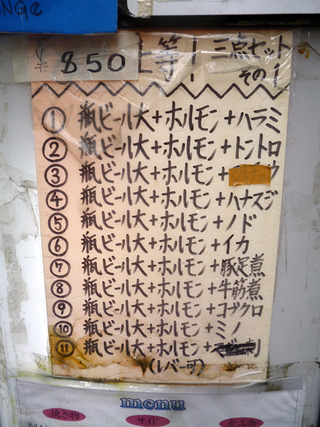 ¥850 一等 三点セット
その1
① 瓶ビール大+ホルモン+ハラミ
② 瓶ビール大+ホルモン+トントロ
③ 瓶ビール大+ホルモン+
④ 瓶ビール大+ホルモン+ハナスジ
⑤ 瓶ビール大+ホルモン+ノド
⑥ 瓶ビール大+ホルモン+イカ
⑦ 瓶ビール大+ホルモン+豚足煮
⑧ 瓶ビール大+ホルモン+牛筋煮
⑨ 瓶ビール大+ホルモン+コブクロ
⑩ 瓶ビール大+ホルモン+ミノ
⑪ 瓶ビール大+ホルモン+
(レバー可)
menu
焼き物 サイド 飲み物